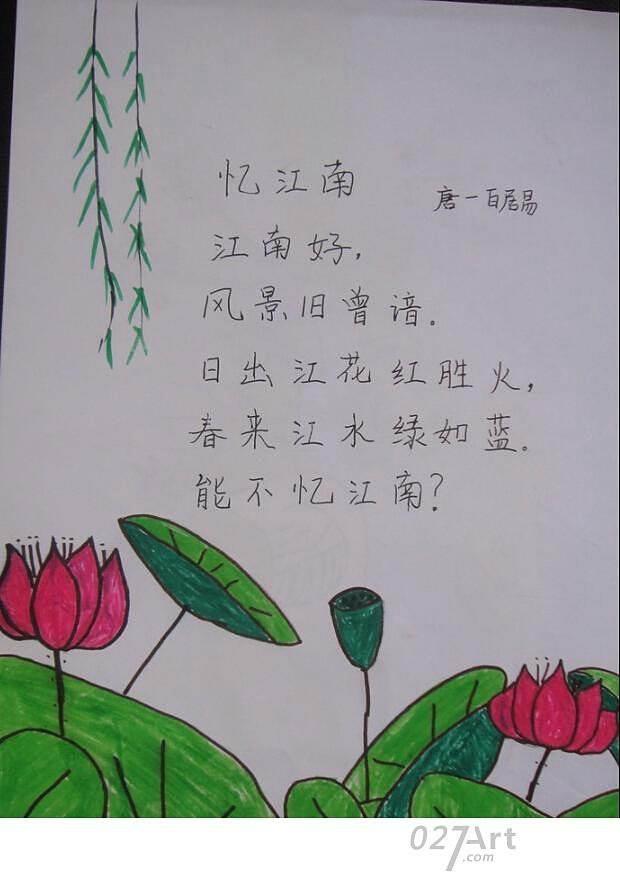 忆江南
唐一白居易
江南好,
风景旧曾谙.
日出江花红胜火,
春来江水绿如蓝。
能不忆江南?
027Art
.com